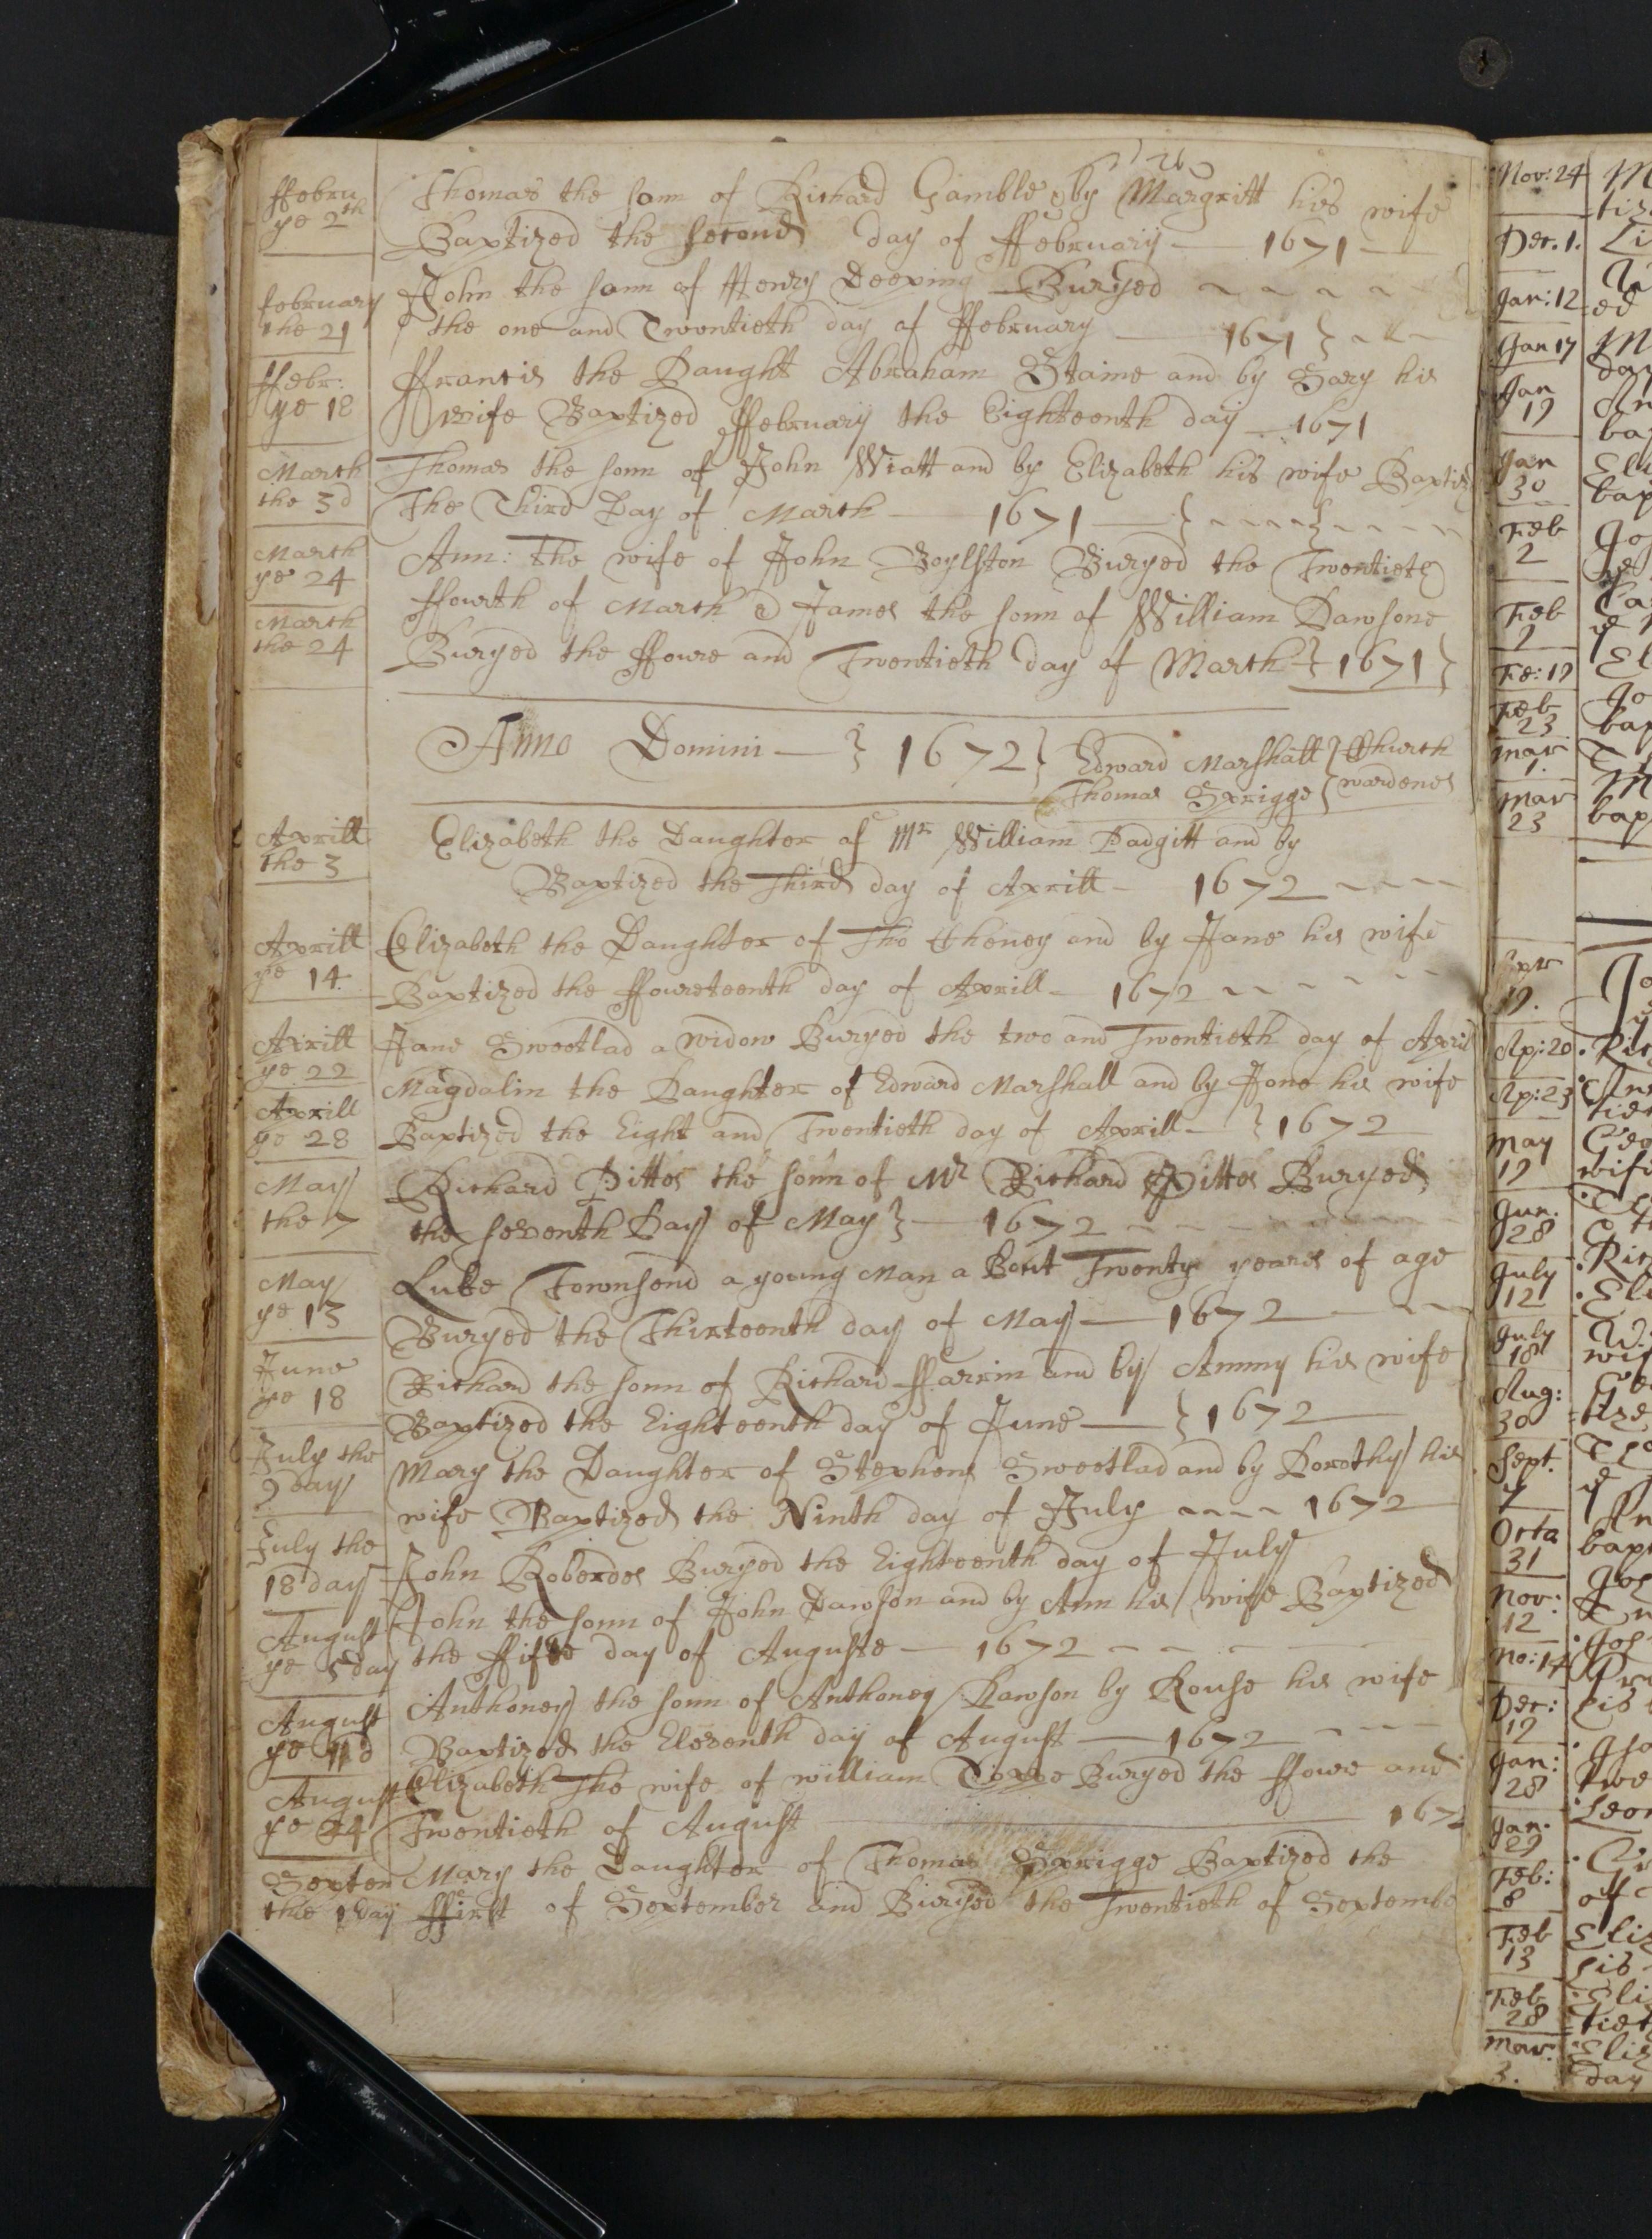 ffebru
ye 2th
Thomas the sonn of Richard Gamble & by Margritt his wife
Baptized the second day of ffebruary 1671
february
the 21
John the sonn of Henry Deeping Buryed
the one and Twentieth day of ffebruary 1671
ffebr:
ye 18
ffrancis the Daught Abraham Staine and by Sary his
wife Baptized ffebruary the Eighteenth day 1671
March
the 3d
Thomas the sonn of John Wiatt and by Elizabeth his wife Baptiz
The Third Day of March 1671
March
ye 24
Ann: The wife of John Boylston Buryed the Twentieth
ffourth of March James the sonn of William Dawsone
March
the 24
Buryed the ffoure and Twentieth day of March } 1671 }
Anno Domini } 1672 } Edward Marshall } Church
Thomas Sprigge { wardenes
Aprill
the 3
Elizabeth the Daughter of Mr William Padgitt and by
Baptized the Third day of Aprill 1672
Aprill
ye 14
Elizabeth the Daughter of Tho Cheney and by Jane his wife
Baptized the ffoureteenth day of Aprill 1672
Aprill
ye 22
Jane Sweetlad a widow Buryed the two and Twentieth day of April
Magdalin the Daughter of Edward Marshall and by Jone his wife
Aprill
ye 28
Baptized the Eight and Twentieth day of Aprill } 1672
May
the 7
Richard Pittes the sonn of Mr Richard Pittes Buryed
the seventh Day of May } 1672
May
ye 13
Luke Townsend a young man a Bout Twenty yeares of age
Buryed the Thirteenth day of May 1672
June
ye 18
Richard the sonn of Richard ffarrin and by Ammy his wife
Baptized the Eighteenth day of June } 1672
July the
9 day
Mary the Daughter of Stephen Sweetlad and by Dorothy his
wife Baptized the Ninth day of July 1672
July the
18 day
John Roberdes Buryed the Eighteenth day of July
John the sonn of John Dawson and by Ann his wife Baptized
August
ye 5 day
the ffifte day of Auguste 1672
August
ye 11 d
Anthoney the sonn of Anthoney Dawson by Rouse his wife
Baptized the Eleventh day of August 1672
August
ye 24
Elizabeth The wife of william Buryed the ffoure and
Twentieth of August 167
Septem
the 1 day
Mary the Daughter of Thomas Sprigge Baptized the
ffirst of September and Buryed the Twentieth of Septembe
Nov: 24
Dec. 1.
Jan: 12
ed
Jan 17
Jan
19
Jan
30
Feb
2
Feb
9
Fe: 19
Feb
23
Mar
1.
Mar
23
Apr
19.
Ap: 20
Ap: 23
May
19
Jun.
28
July
12
July
18
Aug:
30
Sept.
Octo
31
Nov:
12
No: 14
Dec:
19
Jan:
28
Jan.
29
Feb:
8
Feb
13
Feb
28
Mar:
3.
day